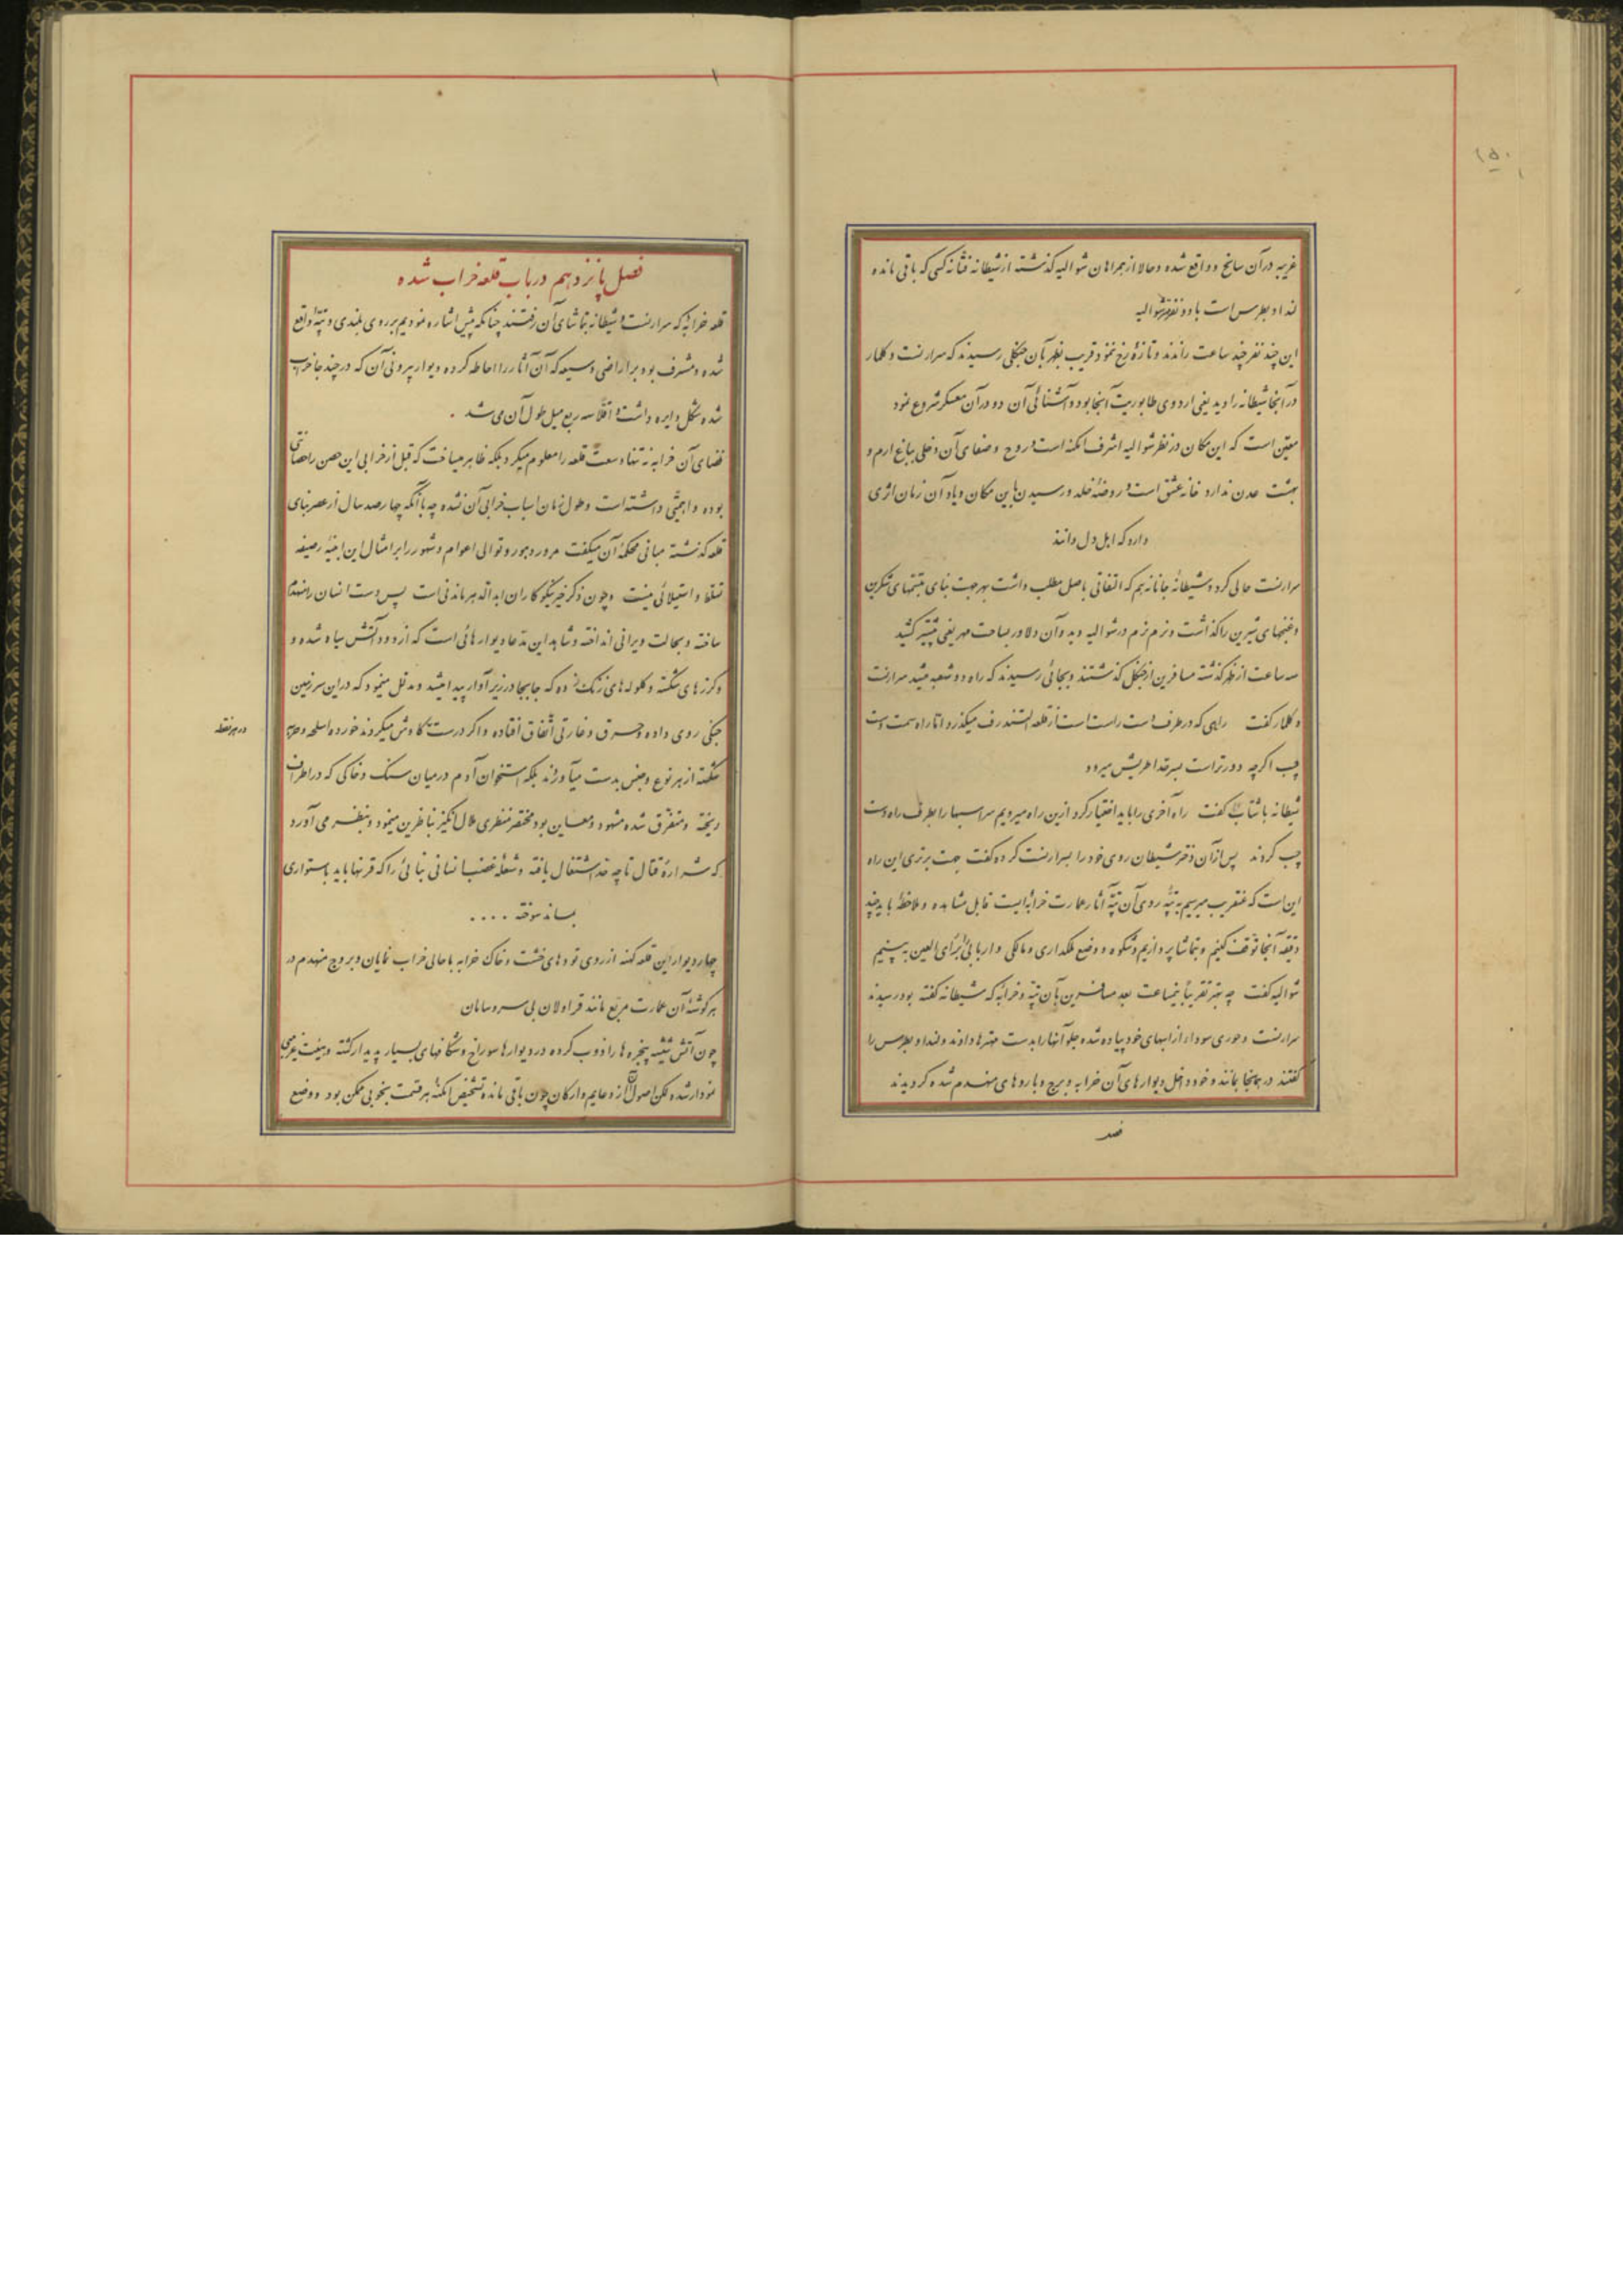 ۱۵۰
غریبه در آن سانح و واقع شده و حالا از همراهان شوالیه گذشته از شیطانه فتانه کسی که باقی مانده
لندا و بطرس است با دو نفر شوالیه
این چند نفر چند ساعت راندند و تازه رخ نمود قریب بظهر بآن جنگلی رسیدند که سرارنست دکلمار
در آنجا شیطانه را دید یعنی اردوی طابوریت آنجا بود و آشنائی آن دو در آن معسکر شروع نمود
معین است که این مکان در نظر شوالیه اشرف امکنه است و روح و صفای آن دخلی بباغ ارم و
بهشت عدن ندارد خانه عشق است و روضهٔ خلد و رسیدن باین مکان و یاد آن زمان اثری
دارد که اهل دل دانند
سرارنست حالی کرد و شیطانهٔ جانانه هم که التفاتی باصل مطلب داشت بهر جهت بنای تبسمهای شکرین
و غنجهای شیرین را گذاشت و نرم نرم در شوالیه دید و آن دلاور بساحت مهر یعنی بیشتر کشید
سه ساعت از ظهر گذشته مسافرین از جنگل گذشتند و بجائی رسیدند که راه دو شعبه میشد سرارنست
دکلمار گفت راهی که در طرف راست است راست از قلعه الستندرف میگذرد اما راه سمت دست
چپ اگرچه دورتر است بسرحد اطریش میرود
شیطانه با شتاب گفت راه آخری را باید اختیار کرد ازین راه میرویم سر اسبها را بطرف راه دست
چپ کردند پس از آن دختر شیطان روی خود را بسرارنست کرده گفت جهت برتری این راه
این است که عنقریب میرسیم به تپه روی آن تپه آثار عمارت خرابه‌ایست قابل مشاهده و ملاحظه باید چند
دقیقه آنجا توقف کنیم و بتماشا پردازیم و شکوه و وضع ملکداری و مالکی و اربابی را برأی العین به بینیم
شوالیه گفت چه بهتر تقریباً نیمساعت بعد مسافرین بآن تپه و خرابه که شیطانه گفته بود رسیدند
سرارنست و حوری سودار از اسبهای خود پیاده شده جلو آنها را بدست مهترها دادند و لندا و بطرس را
گفتند در همانجا بمانند و خود داخل دیوارهای آن خرابه و برج و باروهای منهدم شده گردیدند
فصل پانزدهم در باب قلعه خراب شده
قلعه خرابه که سرارنست و شیطانه بتماشای آن رفتند چنانکه پیش اشاره نمودیم بر روی بلندی و تپه واقع
شده و مشرف بود بر اراضی وسیعه که آن آثار را احاطه کرده و دیوار بیرونی آن که در چند جا خراب
شده شکل دایره داشت و اقلاً سه ربع میل طول آن می شد .
فضای آن خرابه نه تنها وسعت قلعه را معلوم میکرد بلکه ظاهر میساخت که قبل از خرابی این حصن را حصانتی
بوده و اهمیتی داشته است و طول زمان اسباب خرابی آن نشده چه با آنکه چهارصد سال از عصر بنای
قلعه گذشته مبانی محکمهٔ آن میگفت مرور دهور و توالی اعوام و شهور را بر امثال این ابنیهٔ رصیفه
تسلط و استیلائی نیست و چون ذکر خیر نیکوکاران ابد الدهر ماندنی است پس دست انسان را منهدم
ساخته و بحالت ویرانی انداخته و شاهد این مدعا دیوارهائی است که از دود آتش سیاه شده و
گرزهای شکسته و گلوله‌های زنگ زده که جابجا در زیر آوار پیدا میشد و مدلل مینمود که در این سرزمین
جنگی روی داده و حرق و غارتی اتفاق افتاده و اگر درست کاوش میکردند خورده اسلحه و حربه
در هر نقطه
شکسته از هر نوع و جنس بدست میآوردند بلکه استخوان آدم در میان سنگ و خاکی که در اطراف
ریخته و متفرق شده مشهود و معاین بود مختصر منظری ملال انگیز بناظرین مینمود و بنظر می آورد
که شرارهٔ قتال تا چه حد اشتغال یافته و شعلهٔ غضب انسانی بنائی را که قرنها باید باستواری
بماند سوخته ....
چهار دیوار این قلعه کهنه از روی تودهای خشت و خاک خرابه با حالی خراب نمایان و بروج منهدم در
هر گوشهٔ آن عمارت مربع مانند قراولان بی سر و سامان
چون آتش شیشه پنجره‌ها را ذوب کرده در دیوارها سوراخ و شکافهای بسیار پدیدار گشته و هیئت غریبی
نمودار شده لکن اصول آن از دعایم و ارکان چون باقی مانده تشخیص امکنهٔ هر قسمت بخوبی ممکن بود و وضع